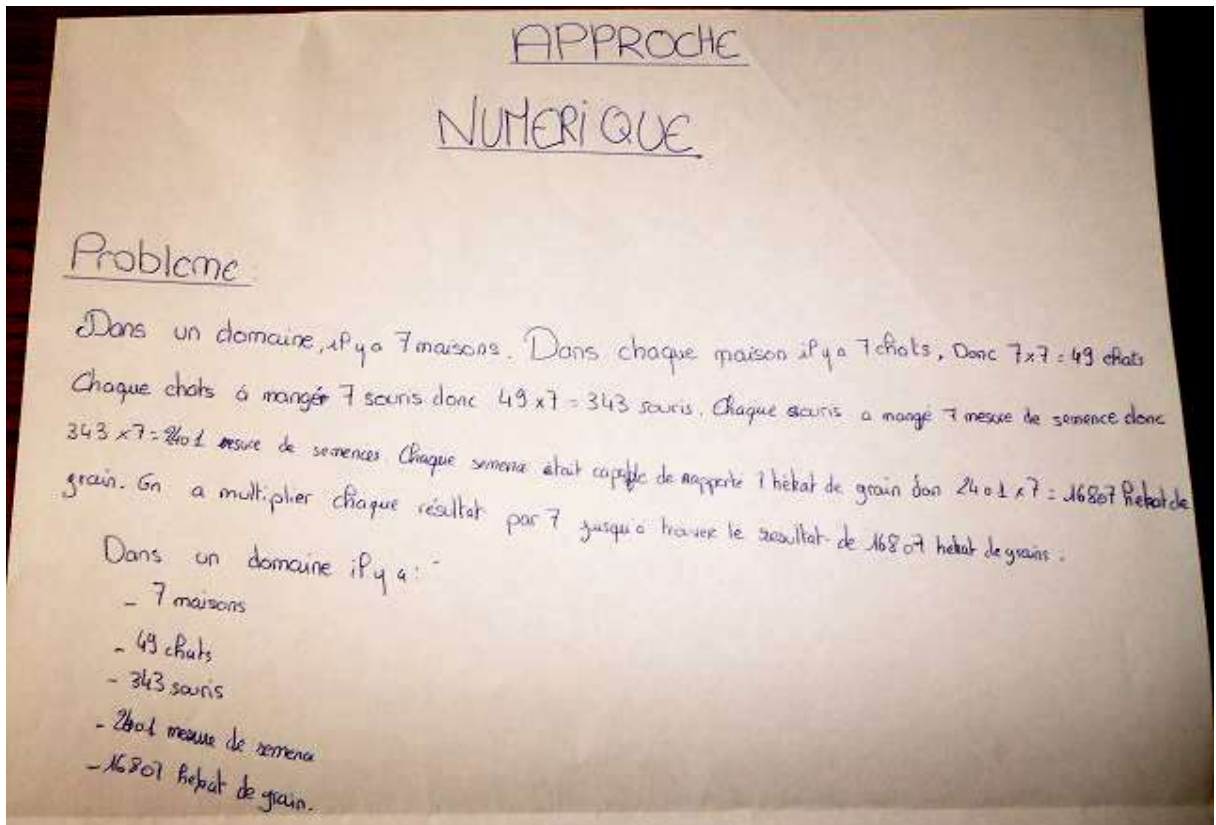 APPROCHE
NUMERiQUE
Probleme
Dans un domaine, il y a 7 maisons. Dans chaque maison il y a 7 chats, Donc 7x7=49 chats
Chaque chats à manger 7 souris donc 49x7=343 souris. Chaque souris a mangé 7 mesure de semence donc
343x7=2401 mesure de semences. Chaque semence était capable de rapporté 7 hekat de grain don 2401x7=16807 hekat de
grain. On a multiplier chaque résultat par 7 jusqu'à trouver le resultat de 16807 hekat de grains.
Dans un domaine il y a :
- 7 maisons
- 49 chats
- 343 souris
- 2401 mesure de semence
- 16807 hekat de grain.